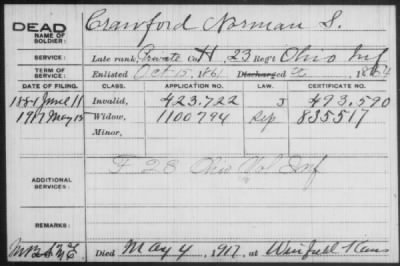 DEAD Crawford Norman S.
NAME OF
SOLDIER:
SERVICE: Late rank, Private Co. H, 23 Reg't Ohio Inf
TERM OF
SERVICE: Enlisted Oct 15, 1861 Discharged 1864
DATE OF FILING. CLASS. APPLICATION NO. CERTIFICATE NO.
1884 June 11 Invalid, 423.722 J 493.590
1917 May 15 Widow, 1100794 Rep 835517
Minor,
F 28 Ohio Vol Inf
ADDITIONAL
SERVICES:
REMARKS:
Died May 4, 1917, at Winfield Kans